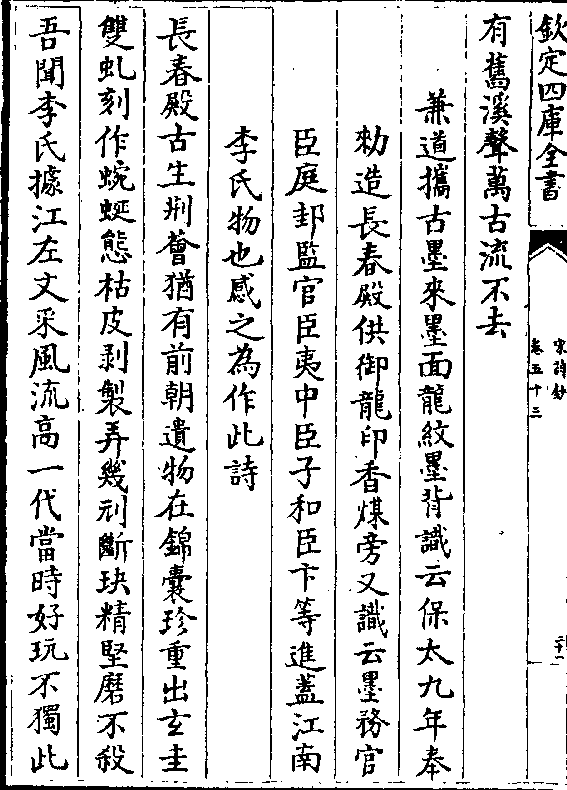 欽定四庫全書
宋詩鈔
卷五十三
有舊溪聲萬古流不去
兼道攜古墨來墨面龍紋墨背識云保太九年奉
勅造長春殿供御龍印香煤旁又識云墨務官
臣庭邽監官臣夷中臣子和臣卞等進蓋江南
李氏物也感之為作此詩
長春殿古生荆薈猶有前朝遺物在錦囊珍重出玄圭
雙虬刻作蜿蜒態枯皮剥製弄幾刓斷玦精堅磨不殺
吾聞李氏據江左文采風流高一代當時好玩不獨此